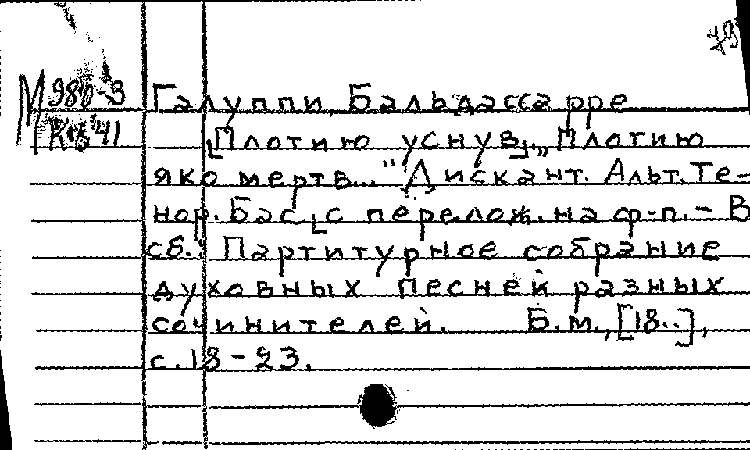 79
М 980-3
Кн 41
Галуппи, Бальдассарре
[Плотию уснув]. „Плотию
яко мертв..." Дискант. Альт. Те-
нор. Бас [с перелож. на ф-п. – В
сб.: Партитурное собрание
духовных песней разных
сочинителей. Б.м., [18..],
с. 18-23.